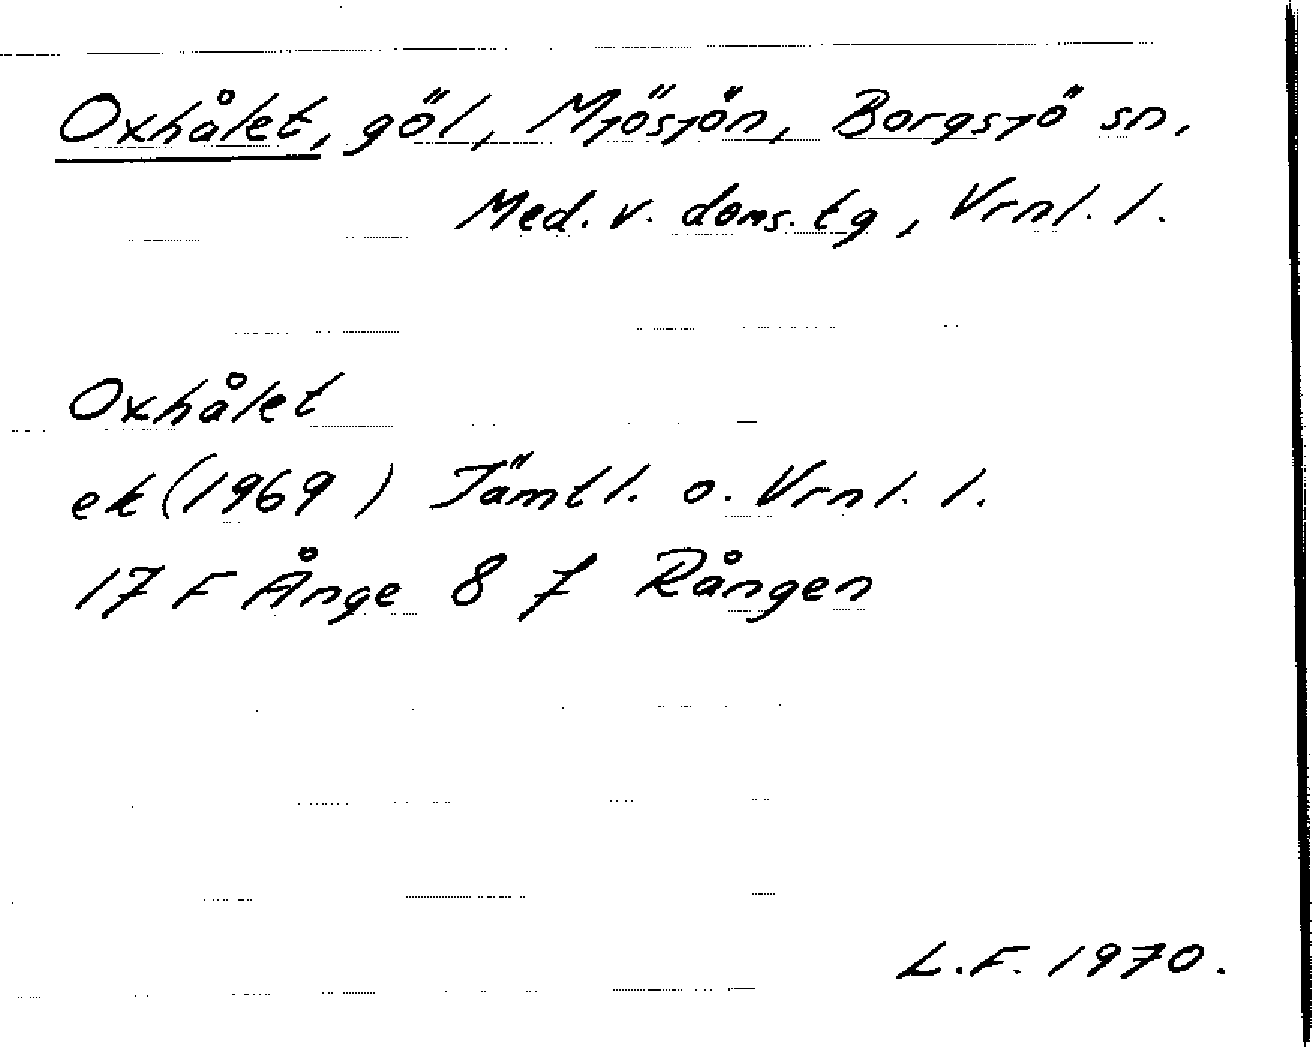 Oxhålet, göl, Mjösjön, Borgsjö sn,
Med. v. doms. tg, Vrnl. l.
Oxhålet
ek (1969) Jämtl. o. Vrnl. l.
17 F Ånge 8 f Rången
L.F. 1970.